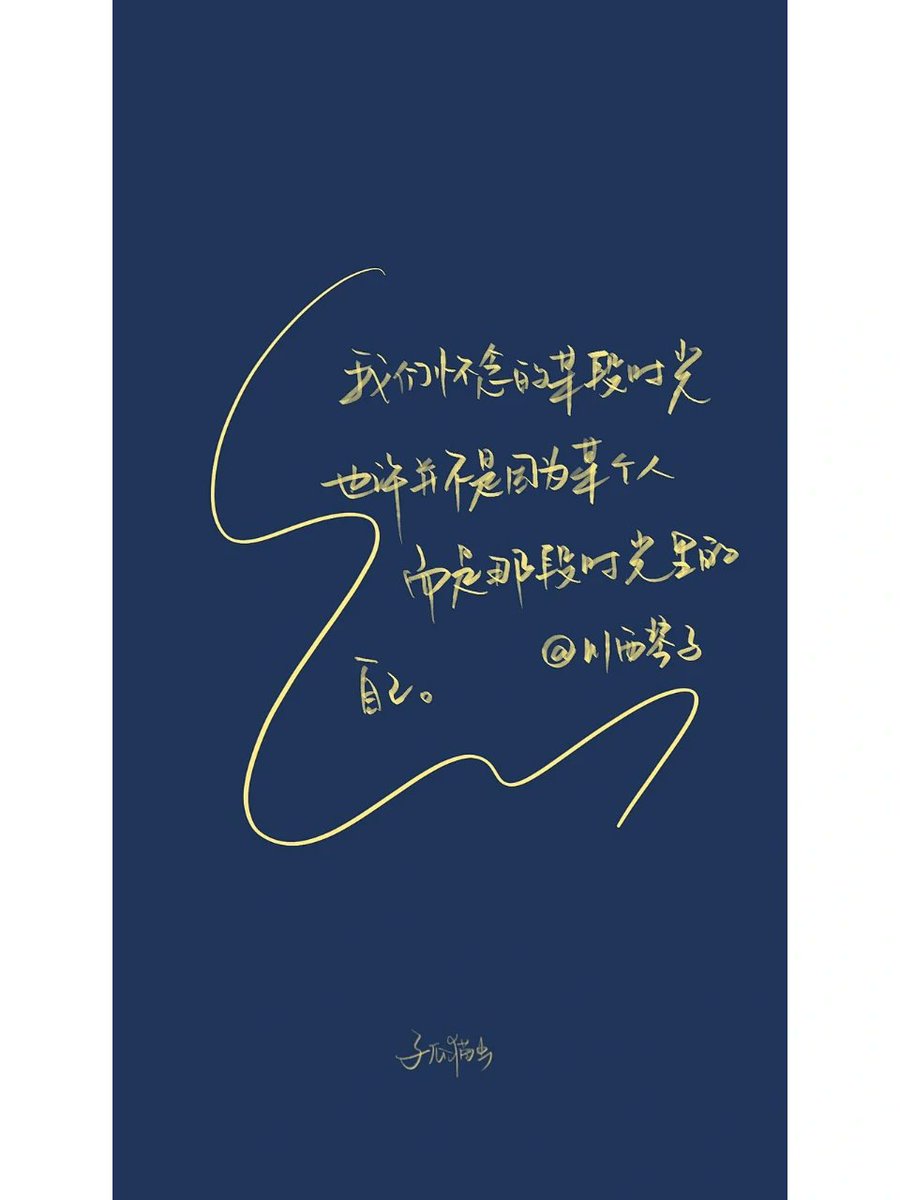 我们怀念的某段时光
也许并不是因为某个人
而是那段时光里的
@川西琴子
自己。